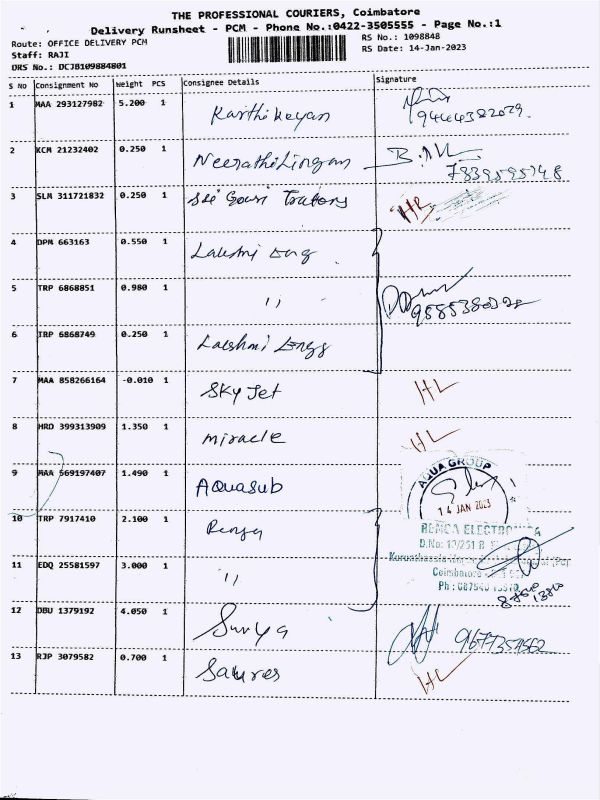 THE PROFESSIONAL COURIERS, Coimbatore
Delivery Runsheet - PCM - Phone No.:0422-3505555 - Page No.:1
Route: OFFICE DELIVERY PCM RS No.: 1098848
Staff: RAJI RS Date: 14-Jan-2023
DRS No.: DCJB109884801
S No Consignment No Weight PCS Consignee Details Signature
1 MAA 293127982 5.200 1 Karthikeyan
2 KCM 21232402 0.250 1 Neerathilingam
3 SLM 311721832 0.250 1 Sri Gowri HL
4 DPM 663163 0.550 1 Lakshmi Eng
5 TRP 6868851 0.980 1 11
6 TRP 6868749 0.250 1 Lakshmi Engg
7 MAA 858266164 -0.010 1 SKY Jet HL
8 HRD 399313909 1.350 1 miracle HL
9 MAA 569197407 1.490 1 Aquasub
AQUA GROUP
14 JAN 2023
10 TRP 7917410 2.100 1
11 EDQ 25581597 3.000 1 11
Coimbatore
12 DBU 1379192 4.050 1 Surya
13 RJP 3079582 0.700 1 HL